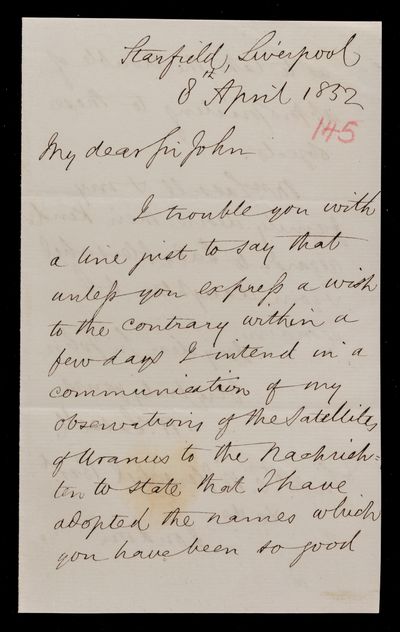 Starfield, Liverpool
8th April 1852
145
My dear Sir John
I trouble you with
a line just to say that
unless you express a wish
to the contrary within a
few days I intend in a
communication of my
observations of the Satellites
of Uranus to the Nachrich=
ten to state that I have
adopted the names which
you have been so good